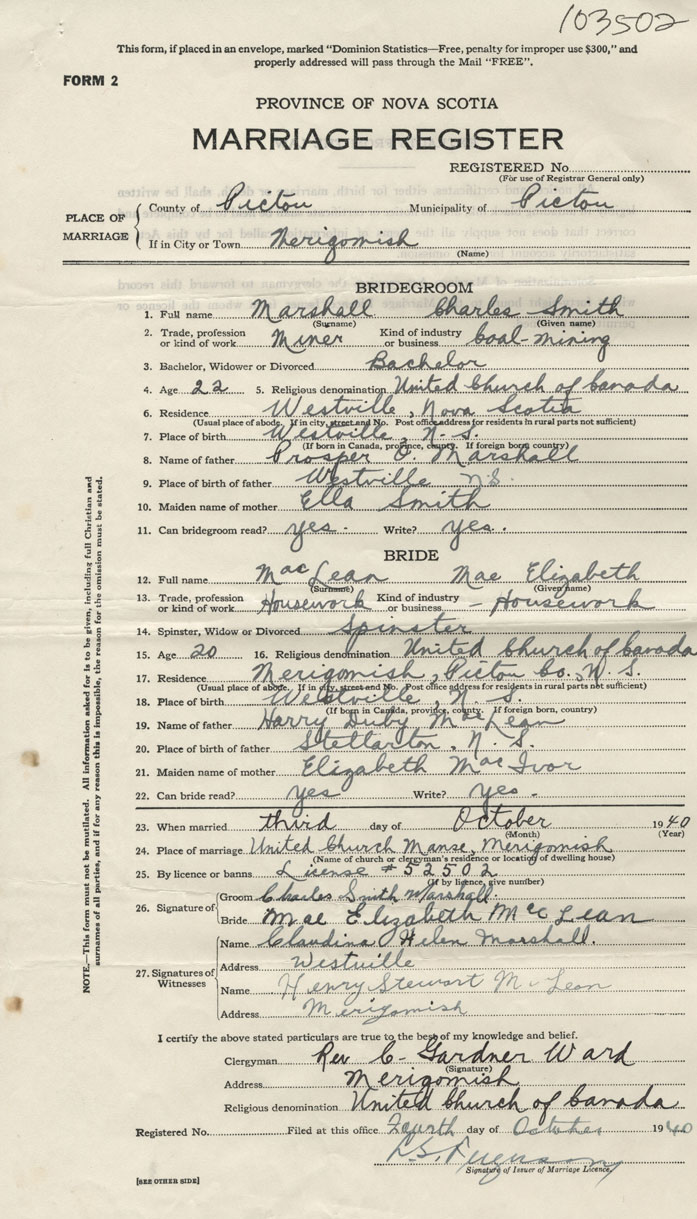 103502
This form, if placed in an envelope, marked "Dominion Statistics—Free, penalty for improper use $300," and
properly addressed will pass through the Mail "FREE".
FORM 2
PROVINCE OF NOVA SCOTIA
MARRIAGE REGISTER
REGISTERED No.
(For use of Registrar General only)
PLACE OF MARRIAGE
County of Pictou Municipality of Pictou
If in City or Town Merigomish
(Name)
BRIDEGROOM
1. Full name Marshall Charles Smith
(Surname) (Given name)
2. Trade, profession or kind of work Miner Kind of industry or business Coal-mining
3. Bachelor, Widower or Divorced Bachelor
4. Age 22 5. Religious denomination United Church of Canada
6. Residence Westville, Nova Scotia
(Usual place of abode. If in city, street and No. Post office address for residents in rural parts not sufficient)
7. Place of birth Westville, N.S.
(If born in Canada, province, county. If foreign born, country)
8. Name of father Prosper O. Marshall
9. Place of birth of father Westville N.S.
10. Maiden name of mother Ella Smith
11. Can bridegroom read? yes. Write? yes.
BRIDE
12. Full name MacLean Mae Elizabeth
(Surname) (Given name)
13. Trade, profession or kind of work Housework Kind of industry or business - Housework
14. Spinster, Widow or Divorced Spinster
15. Age 20 16. Religious denomination United Church of Canada
17. Residence Merigomish, Pictou Co., N.S.
(Usual place of abode. If in city, street and No. Post office address for residents in rural parts not sufficient)
18. Place of birth Westville, N.S.
(If born in Canada, province, county. If foreign born, country)
19. Name of father Harry Duby MacLean
20. Place of birth of father Stellarton, N.S.
21. Maiden name of mother Elizabeth MacIvor
22. Can bride read? yes Write? yes.
23. When married third day of October 1940
(Month) (Year)
24. Place of marriage United Church Manse, Merigomish
(Name of church or clergyman's residence or location of dwelling house)
25. By licence or banns License #52502
(If by licence, give number)
26. Signature of Groom Charles Smith Marshall.
Bride Mae Elizabeth MacLean
27. Signatures of Witnesses
Name Claudina Helen Marshall.
Address Westville
Name Henry Stewart McLean
Address Merigomish
I certify the above stated particulars are true to the best of my knowledge and belief.
Clergyman Rev C- Gardner Ward
(Signature)
Address Merigomish
Religious denomination United Church of Canada
Registered No. Filed at this office Fourth day of October 1940
Signature of Issuer of Marriage Licence.
[SEE OTHER SIDE]
NOTE.—This form must not be mutilated. All information asked for is to be given, including full Christian and
surnames of all parties, and if for any reason this is impossible, the reason for the omission must be stated.